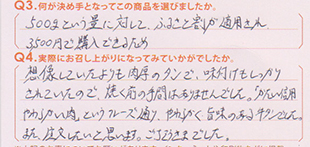 Q3.何が決め手となってこの商品を選びましたか。
500gという量に対して、ふるさと割が適用され
3500円で購入できるため
Q4.実際にお召し上がりになってみていかがでしたか。
想像していたよりも肉厚のタンで、味付けもしっかり
されていたので、焼く前の手間はありませんでした。「かたい信用
やわらかい肉」というフレーズ通り、やわらかく旨味のある牛タンでした。
また、注文したいと思います。ごちそうさまでした。